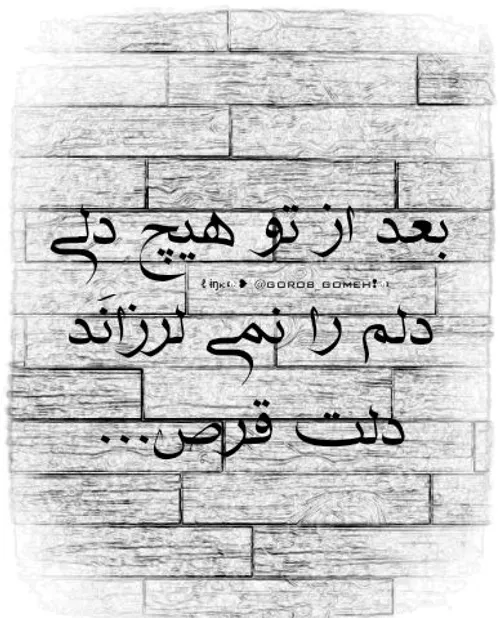 بعد از تو هیچ دلی
@GOROB_GOMEH!
دلم را نمی لرزاَند
دلت قرص...